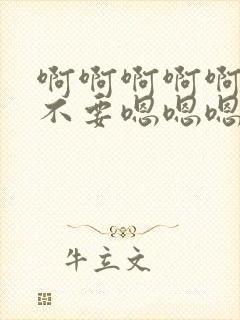 啊啊啊啊啊
不要嗯嗯嗯
牛立文